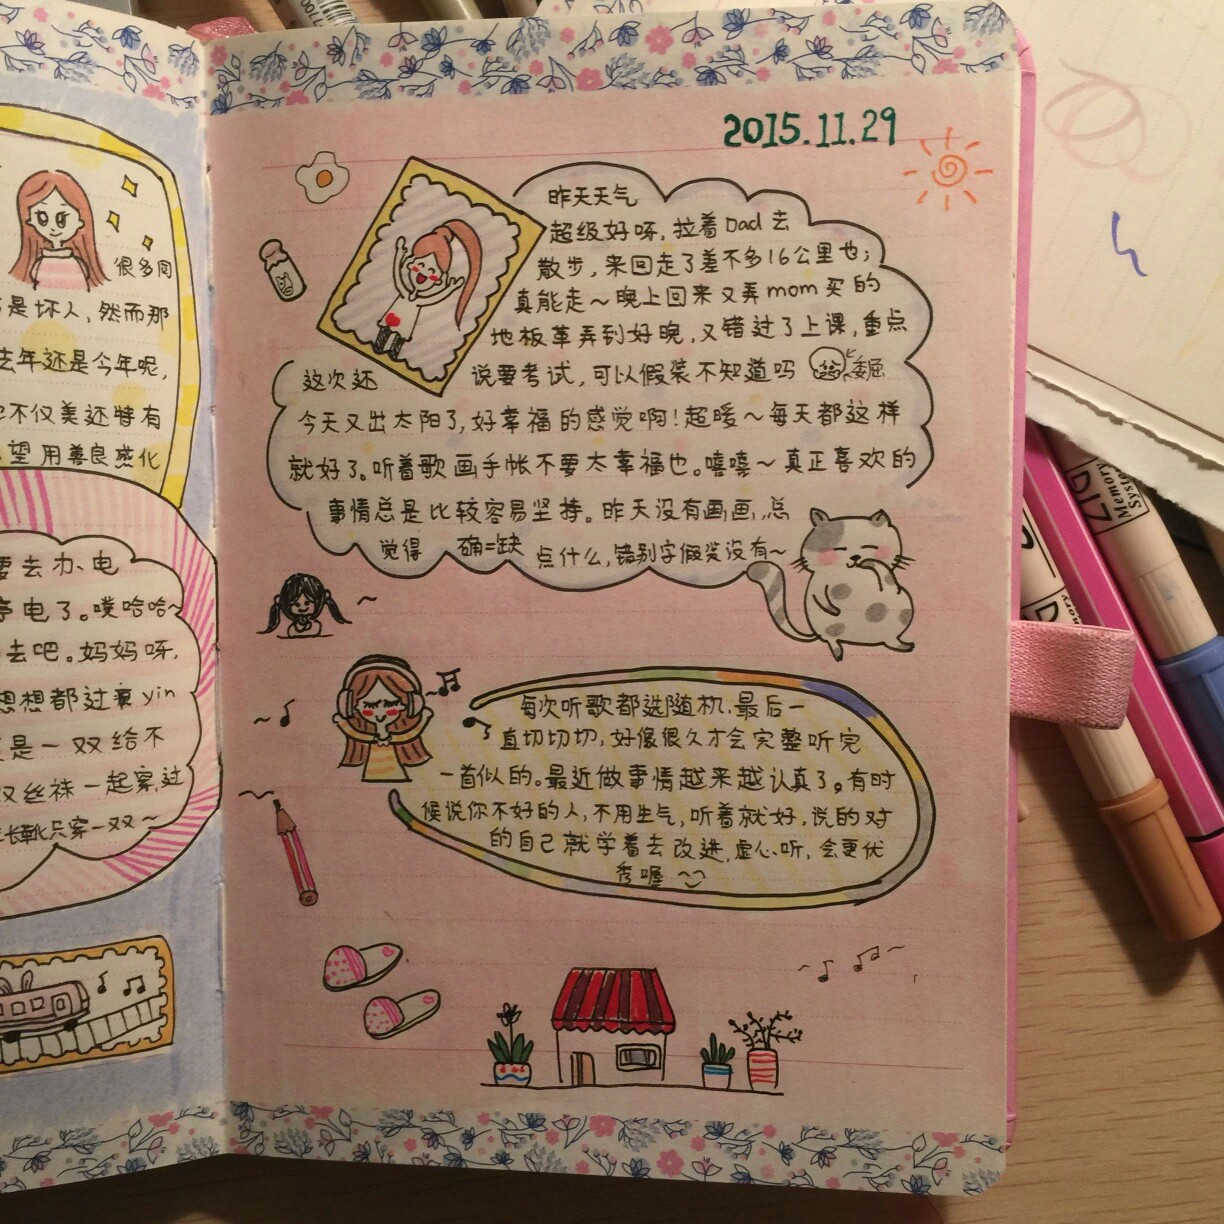 很多同
是坏人,然而那
去年还是今年呢,
也不仅美还特有
望用善良感化
要去办、电
停电了。噗哈哈~
去吧。妈妈呀,
想想都过瘾yin
是一双给不
双丝袜一起穿,过
长靴只穿一双~
2015.11.29
昨天天气
超级好呀,拉着Dad去
散步,来回走了差不多16公里也;
真能走~晚上回来又弄mom买的
地板革弄到好晚,又错过了上课,重点
这次还 说要考试,可以假装不知道吗 委屈
今天又出太阳了,好幸福的感觉啊!超暖~每天都这样
就好了。听着歌画手帐不要太幸福也。嘻嘻~真正喜欢的
事情总是比较容易坚持。昨天没有画画,总
觉得 确=缺 点什么,错别字假装没有~
每次听歌都选随机,最后一
直切切切,好像很久才会完整听完
一首似的。最近做事情越来越认真了。有时
候说你不好的人,不用生气,听着就好,说的对
的自己就学着去改进,虚心听,会更优
秀喔
Memory
System
DIZ